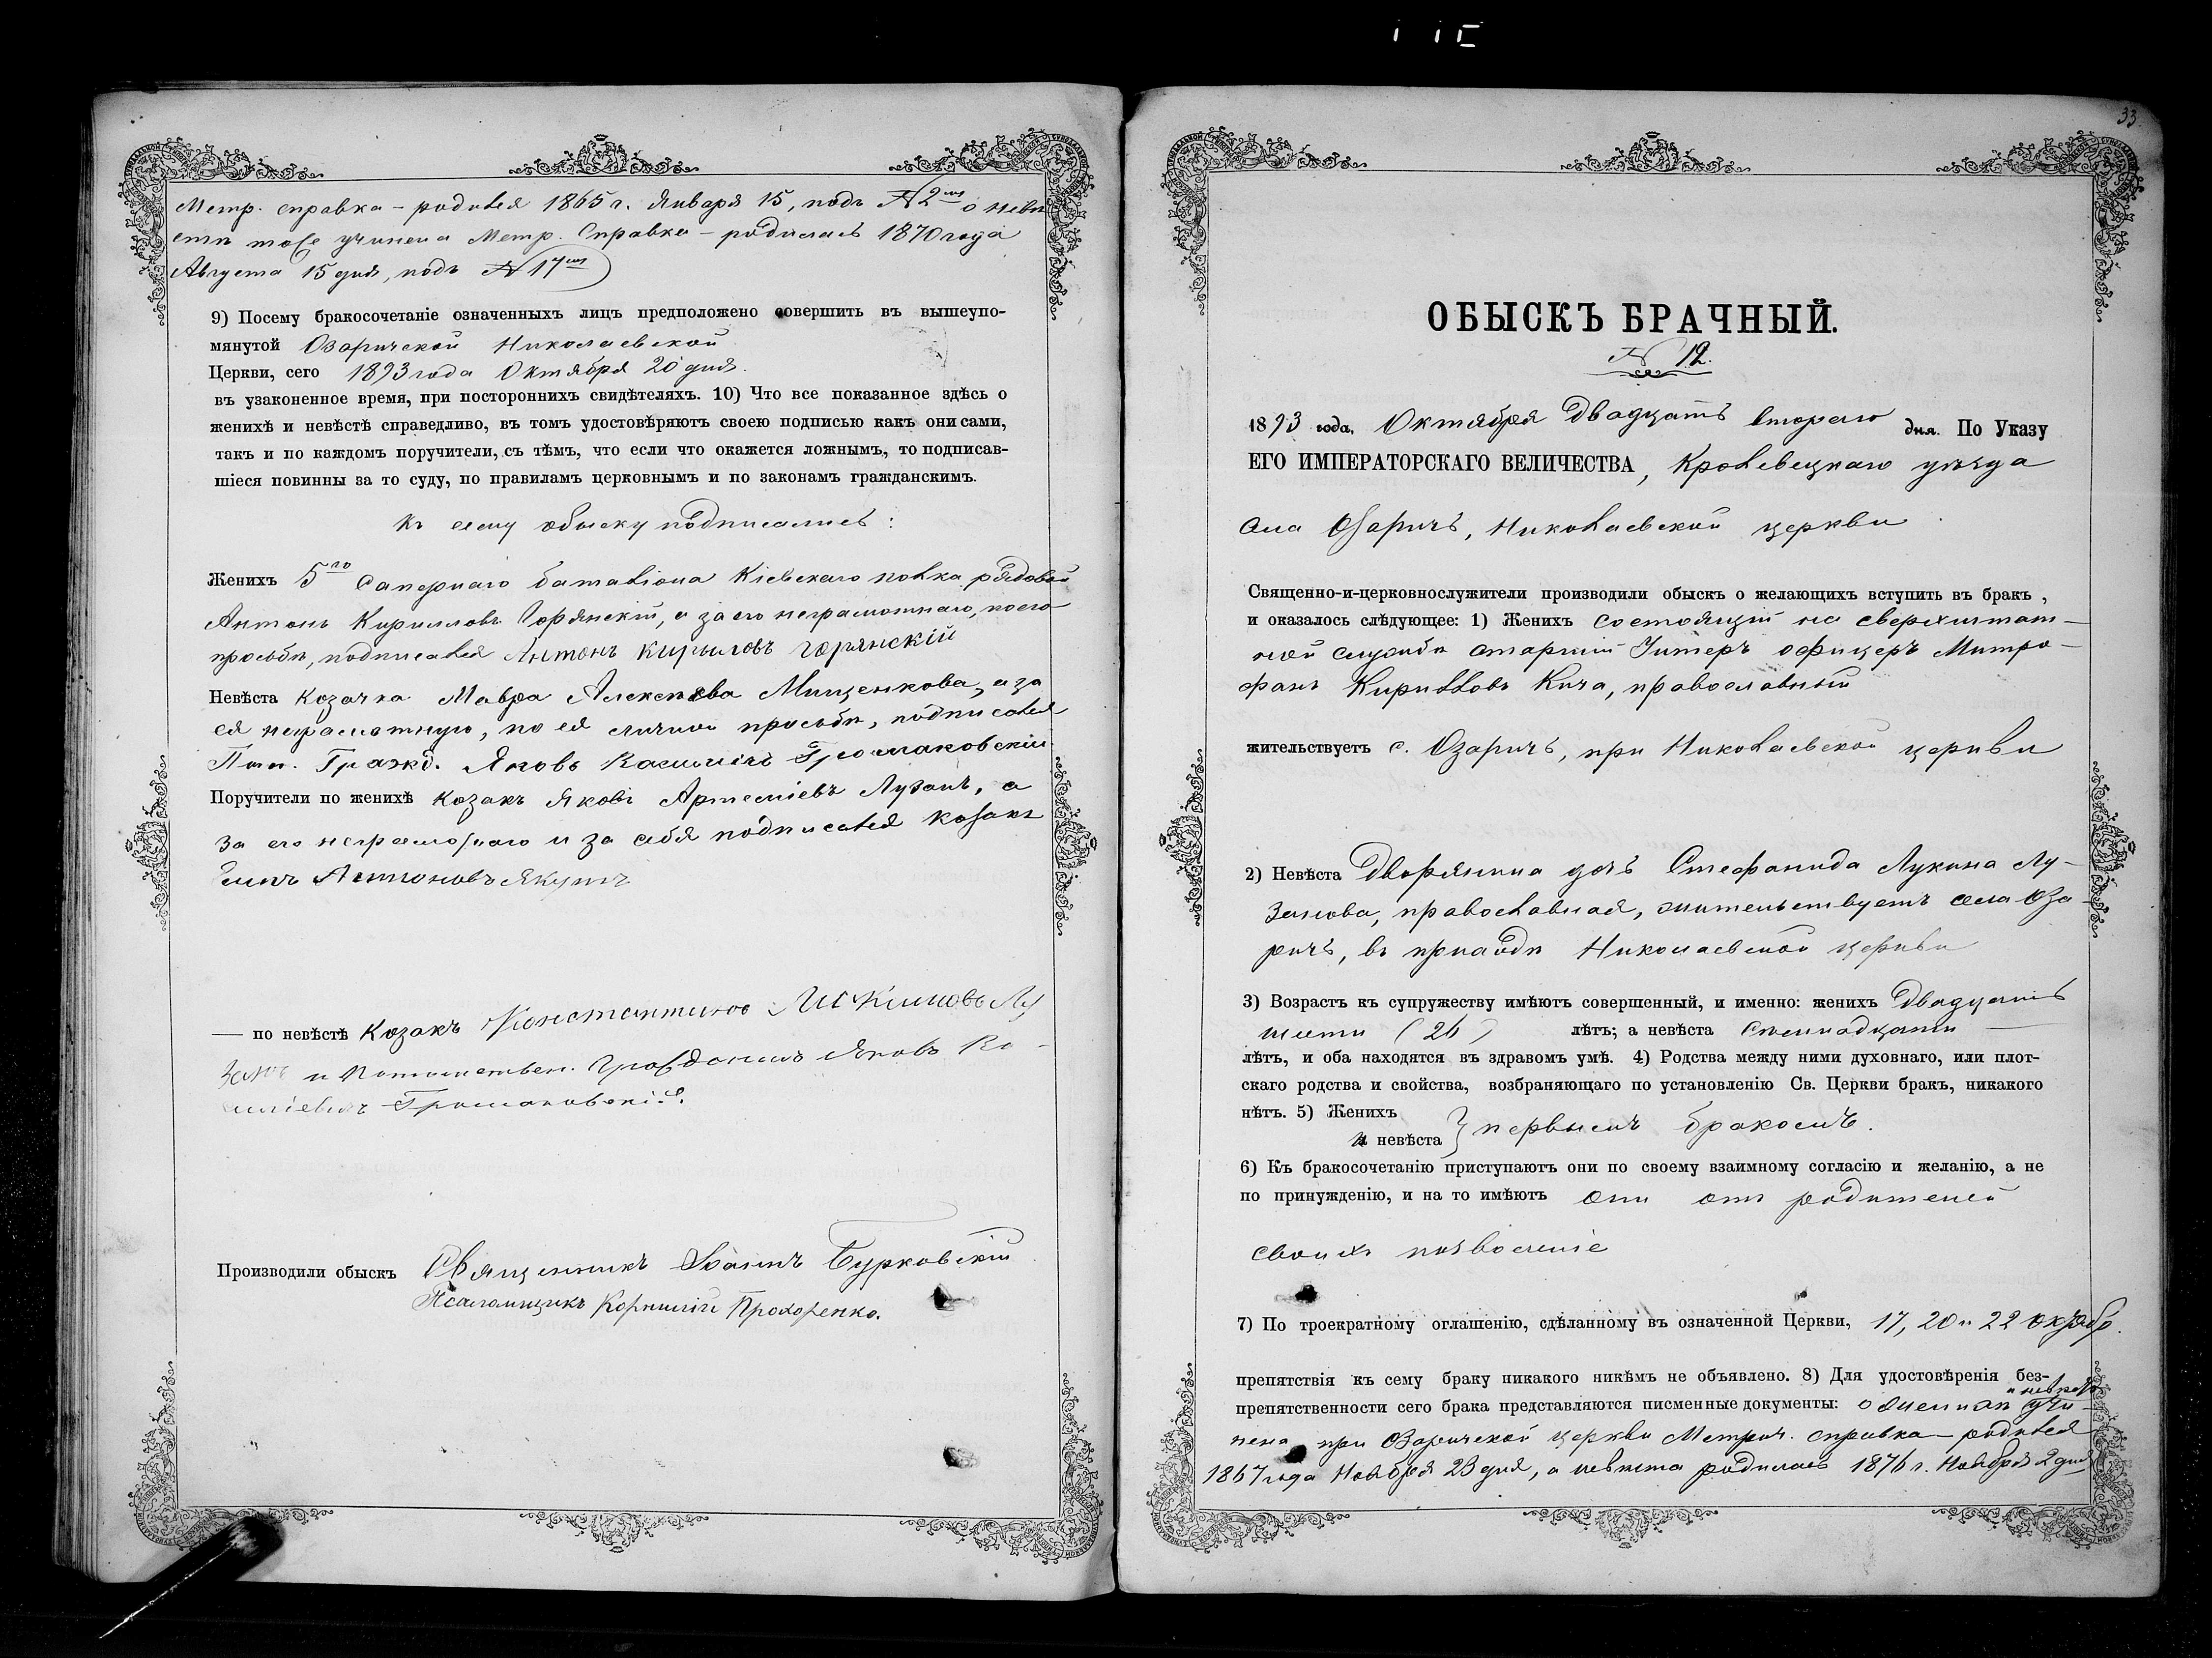 Метр. справка – родился 1865 г. Января 15, подъ № 2мъ о невѣ
стѣ тоже учинена Метр. Справка – родилась 1870 года
Августа 15 дня, подъ № 17мъ
9) Посему бракосочетаніе означенныхъ лицъ предположено совершить въ вышеупо-
мянутой Озаричской Николаевской
Церкви, сего 1893 года Октября 20 дня.
въ узаконенное время, при постороннихъ свидѣтеляхъ. 10) Что все показанное здѣсь о
женихѣ и невѣстѣ справедливо, въ томъ удостовѣряютъ своею подписью какъ они сами,
такъ и по каждомъ поручители, съ тѣмъ, что если что окажется ложнымъ, то подписав-
шіеся повинны за то суду, по правиламъ церковнымъ и по законамъ гражданскимъ.
Къ сему обыску подписались:
Женихъ 5го Сапернаго баталіона Кіевскаго полка рядовой
Антонъ Кирилловъ Горянскій, а за его неграмотнаго, по его
просьбѣ, подписался Антонъ Кирыловъ Горянскій
Невѣста Козачка Мавра Алексѣева Мищенкова, а за
ея неграмотную, по ея личной просьбѣ, подписался
Пот. Гражд. Яковъ Громаковскій
Поручители по женихѣ Козакъ Яковъ Артеміевъ Лузанъ, а
за его неграмотнаго и за себя подписался козакъ
Антоновъ Якутъ
— по невѣстѣ Козакъ Константинъ Лу
занъ и Потомствен. Гражданинъ Яковъ Ка
Громаковскій.
Производили обыскъ Священникъ Іоаннъ Бурковскій
Псаломщикъ Корнилій Прохоренко.
33.
ОБЫСКЪ БРАЧНЫЙ.
№ 12.
1893 года, Октября Двадцать втораго дня. По Указу
ЕГО ИМПЕРАТОРСКАГО ВЕЛИЧЕСТВА, Кролевецкаго уѣзда
села Озаричъ, Николаевской церкви
Священно-и-церковнослужители производили обыскъ о желающихъ вступить въ бракъ,
и оказалось слѣдующее: 1) Женихъ состоящій на сверхштат–
ной службѣ старшій Унтеръ офицеръ Митро–
фанъ Кирилловъ Кича, православный
жительствуетъ с. Озаричъ, при Николаевской церкви
2) Невѣста Дворянина дочь Стефанида Лукина Лу–
занова, православная, жительствуетъ села Оза–
ричъ, въ приходѣ Николаевской церкви
3) Возрастъ къ супружеству имѣютъ совершенный, и именно: женихъ Двадцать
шести (26) лѣтъ; а невѣста семнадцати —
лѣтъ, и оба находятся въ здравомъ умѣ. 4) Родства между ними духовнаго, или плот-
скаго родства и свойства, возбраняющаго по установленію Св. Церкви бракъ, никакого
нѣтъ. 5) Женихъ
и невѣста } первымъ бракомъ.
6) Къ бракосочетанію приступаютъ они по своему взаимному согласію и желанію, а не
по принужденію, и на то имѣютъ они отъ родителей
своихъ позволеніе
7) По троекратному оглашенію, сдѣланному въ означенной Церкви, 17, 20 и 22 октябр.
препятствія къ сему браку никакого никѣмъ не объявлено. 8) Для удостовѣренія без-
препятственности сего брака представляются писменные документы: о женихѣ и невѣстѣ учи–
нена при Озаричской церкви Метрич. справка – родился
1867 года Ноября 23 дня, а невѣста родилась 1876 г. Ноября 2 дня